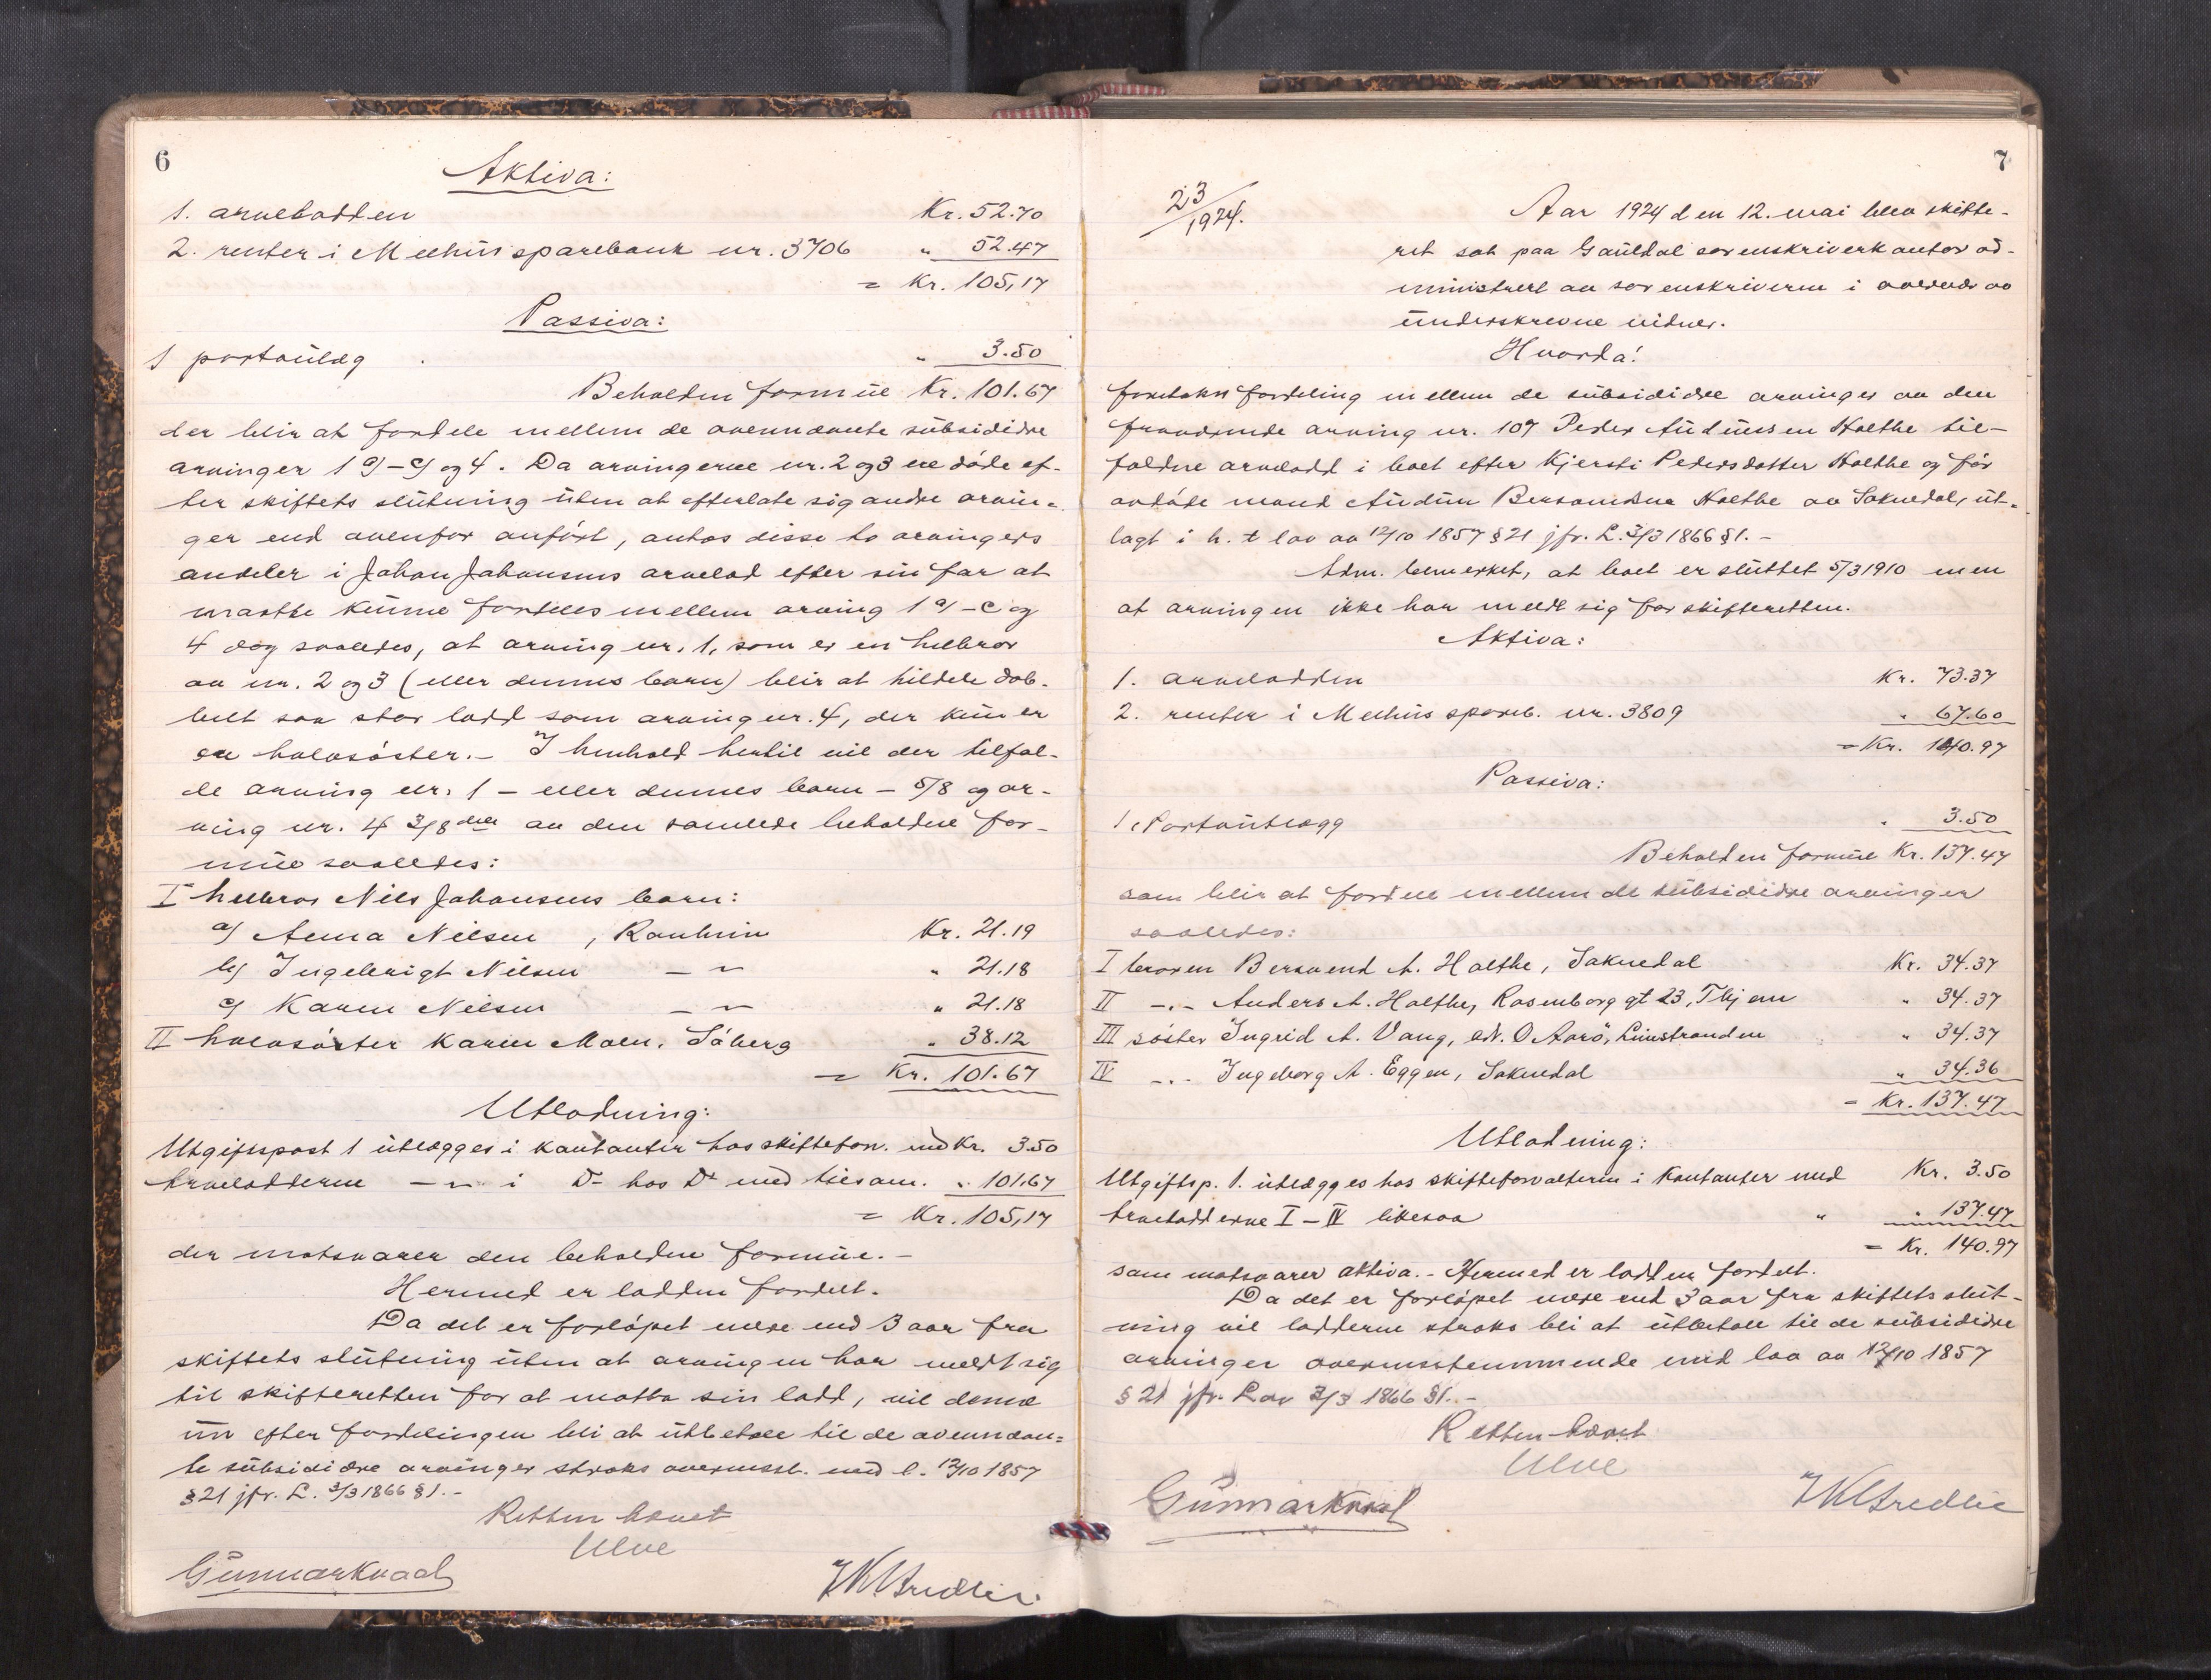 6
Aktiva:
1. arvelodden Kr. 52.70
2. renter i Melhus sparebank nr. 3706 " 52.47
= Kr. 105,17
Passiva:
1 portoutlæg " 3.50
Beholden formue Kr. 101.67
der blir at fordele mellem de ovennævnte subsidiære
arvinger 1 a/-c/ og 4. Da arvingerne nr. 2 og 3 ere døde ef-
ter skiftets slutning uten at efterlate sig andre arvin-
ger end ovenfor anført, antas disse to arvingers
andeler i Johan Johansens arvelod efter sin far at
maatte kunne fordeles mellem arving 1 a/-c og
4 dog saaledes, at arving nr. 1, som er en helbror
av nr. 2 og 3 (eller dennes barn) blir at tildele dob-
belt saa stor lodd som arving nr. 4, der kun er
en halvsøster.- I henhold hertil vil der tilfal-
de arving nr. 1 - eller dennes barn - 5/8 og ar-
ving nr. 4 3/8 deler av den samlede beholdne for-
mue saaledes:
I helbror Nils Johansens barn:
a/ Anna Nilsen , Ranheim Kr. 21.19
b/ Ingebrigt Nilsen — " — " 21.18
c/ Karen Nilsen — " — " 21.18
II halvsøster Karen Moen, Søberg " 38.12
= Kr. 101.67
Utlodning:
Utgiftspost 1 utlægges i kontanter hos skiftefor. med Kr. 3.50
Arveloddene — " — i Do hos Do med tilsam. " 101.67
= Kr. 105,17
der motsvarer den beholdne formue. -
Hermed er lodden fordelt.
Da det er forløpet mere end 3 aar fra
skiftets slutning uten at arvingen har meldt sig
til skifteretten for at motta sin lodd, vil denne
nu efter fordelingen bli at utbetale til de ovennævn-
te subsidiære arvinger straks overensst. med l. 12/10 1857
§ 21 jfr. L. 3/3 1866 § 1. -
Retten hævet
Ulve
Gunnar Kvaal
7
23/1924.
Aar 1924 den 12. mai blev skifte-
ret sat paa Gauldal sorenskriverkontor ad-
ministrert av sorenskriveren i overvær av
underskrevne vidner.
Hvorda:
foretokes fordeling mellem de subsidiære arvinger av den
fraværende arving nr. 107 Peder Audunsen Holthe til-
faldne arvelodd i boet efter Kjersti Pedersdatter Holthe og før
avdøde mand Audun Bersvendsen Holthe av Soknedal, ut-
lagt i h. t lov av 12/10 1857 § 21 jfr. L. 3/3 1866 § 1. -
Adm. bemerket, at boet er sluttet 5/3 1910 men
at arvingen ikke har meldt sig for skifteretten.
Aktiva:
1. arvelodden Kr. 73.37
2. renter i Melhus spareb. nr. 3809 " 67.60
= Kr. 140.97
Passiva:
1. Portoutlægg " 3.50
Beholden formue Kr. 137.47
som blir at fordele mellem de subsidiære arvinger
saaledes:
I broren Bersvend A. Holthe, Soknedal Kr. 34.37
II -"- Anders A. Holthe, Rosenborg gt 23, Thjem " 34.37
III søster Ingrid A. Vang, adr. O Aarø, Leinstranden " 34.37
IV -"- Ingeborg A. Eggen, Soknedal " 34.36
= Kr. 137.47
Utlodning:
Utgiftsp. 1. utlægges hos skifteforvalteren i kontanter med Kr. 3.50
Arveloddene I - IV likesaa " " 137.47
= Kr. 140.97
som motsvarer aktiva. - Hermed er lodden fordelt.
Da det er forløpet mere end 3 aar fra skiftets slut-
ning vil loddene straks bli at utbetale til de subsidiære
arvinger overensstemmende med lov av 12/10 1857
§ 21 jfr. Lov 3/3 1866 § 1. -
Retten hævet
Ulve
Gunnar Kvaal